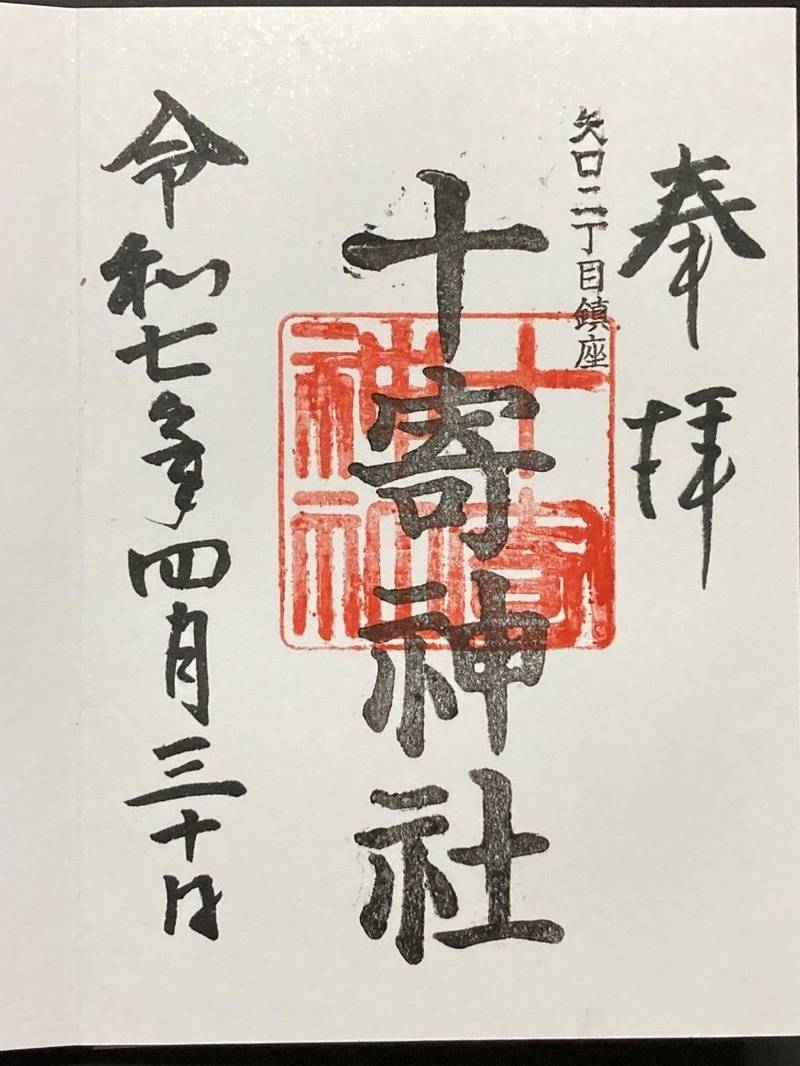 奉拝
矢口二丁目鎮座
十寄神社
十寄神社
令和七年四月三十日